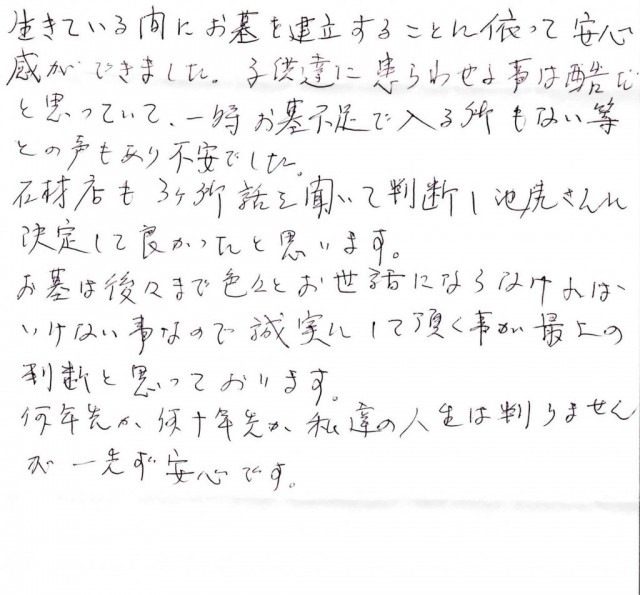 生きている間にお墓を建立することに依って安心
感ができました。子供達に患らわせる事は酷だ
と思っていて、一時お墓不足で入る所もない等
との声もあり不安でした。
石材店も3ヶ所話を聞いて判断し池尻さんに
決定して良かったと思います。
お墓は後々まで色々とお世話にならなければ
いけない事なので誠実にして頂く事が最上の
判断と思っております。
何年先か、何十年先か、私達の人生は判りません
が一先ず安心です。